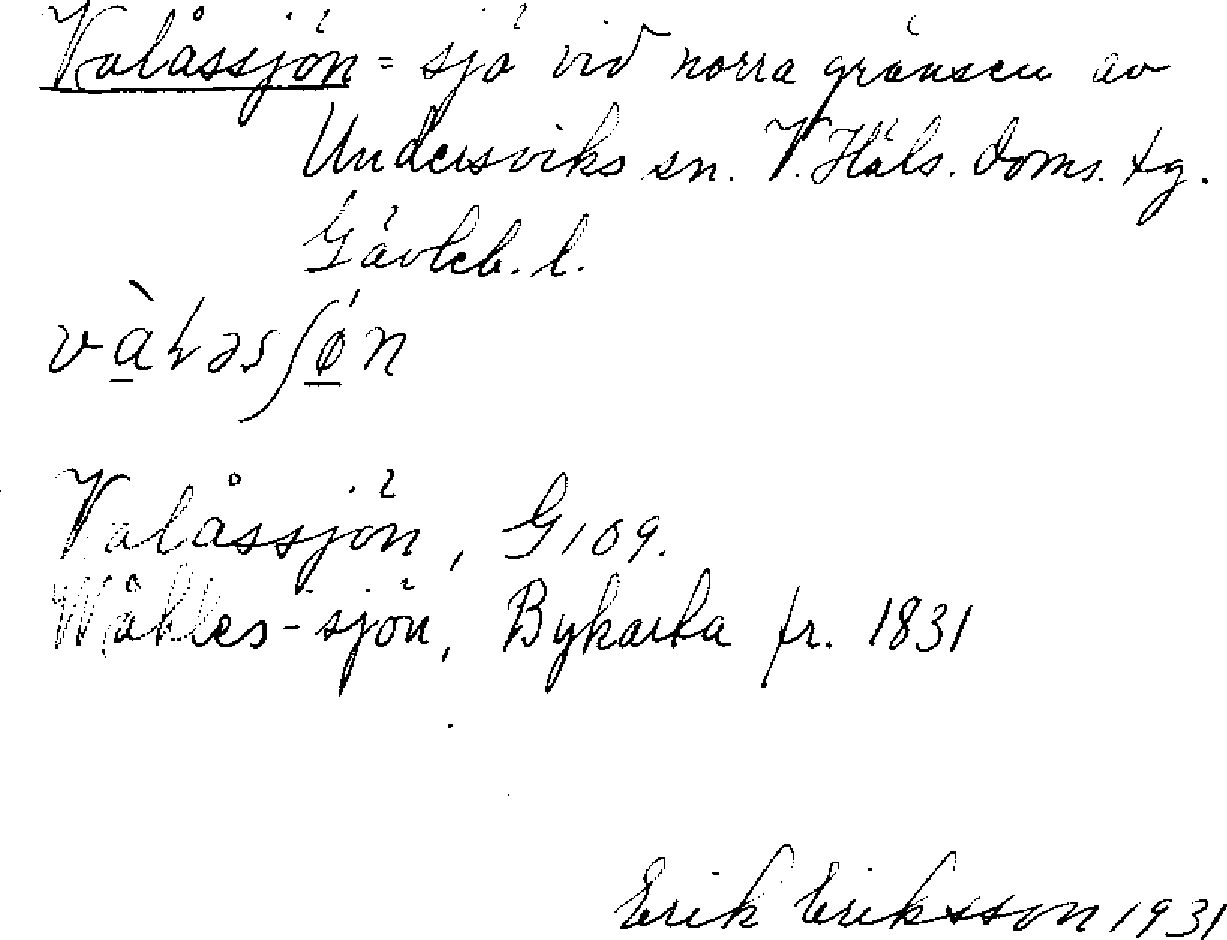 Valåssjön = sjö vid norra gränsen av
Undersviks sn. V. Häls. doms. tg.
Gävleb. l.
Valåssjön, G 109.
Wåhles-sjön, Bykarta fr. 1831
Erik Eriksson 1931